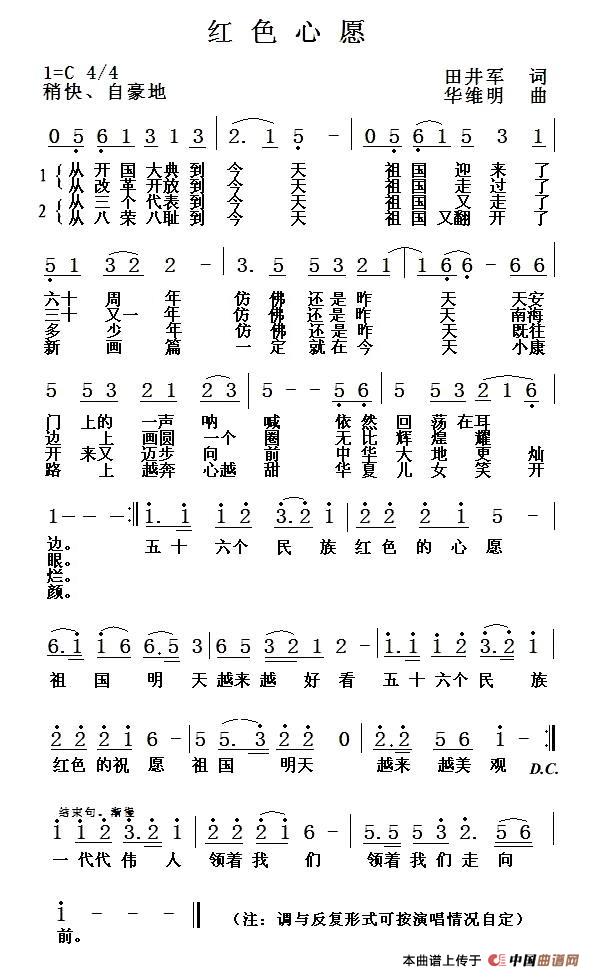 红色心愿
1=C 4/4
田井军 词
稍快、自豪地
华维明 曲
0 5 6 1 3 1 3 | 2. 1 5 - | 0 5 6 1 5 3 1 |
1 从开国大典到今天 祖国迎来了
从改革开放到今天 祖国走过了
2 从三个代表到今天 祖国又走了
从八荣八耻到今天 祖国又翻开了
5 1 3 2 2 - | 3. 5 5 3 2 1 | 1 6 6 - 6 5 |
六十周年 仿佛还是昨天 天安
三十又一年 仿佛还是昨天 南海
多少年 仿佛还是昨天 既往
新画篇 一定就在今天 小康
5 5 3 2 1 2 3 | 5 - - 5 6 | 5 5 3 2 1 6 |
门上的一声呐喊 依然回荡在耳
边上画圆一个圈 无比辉煌耀
开来又迈步向前 中华大地更灿
路上越奔心越甜 华夏儿女笑开
1 - - - :‖ 1. 1 1 2 3. 2 1 | 2 2 2 1 5 - |
边。 五十六个民族红色的心愿
眼。
烂。
颜。
6. 1 1 6 6. 5 3 | 6 5 3 2 3 1 2 - | 1. 1 1 2 3. 2 1 |
祖国明天越来越好看 五十六个民族
2 2 2 1 6 - | 5 5. 3 2 2 0 | 2. 2 5 6 1 - ‖
红色的祝愿 祖国明天 越来越美观 D.C.
结束句。渐慢
1 1 2 3. 2 1 | 2 2 2 1 6 - | 5. 5 5 3 2. 5 6 |
一代代伟人 领着我们 领着我们走向
1 - - - ‖ (注：调与反复形式可按演唱情况自定)
前。
本曲谱上传于 中国曲谱网